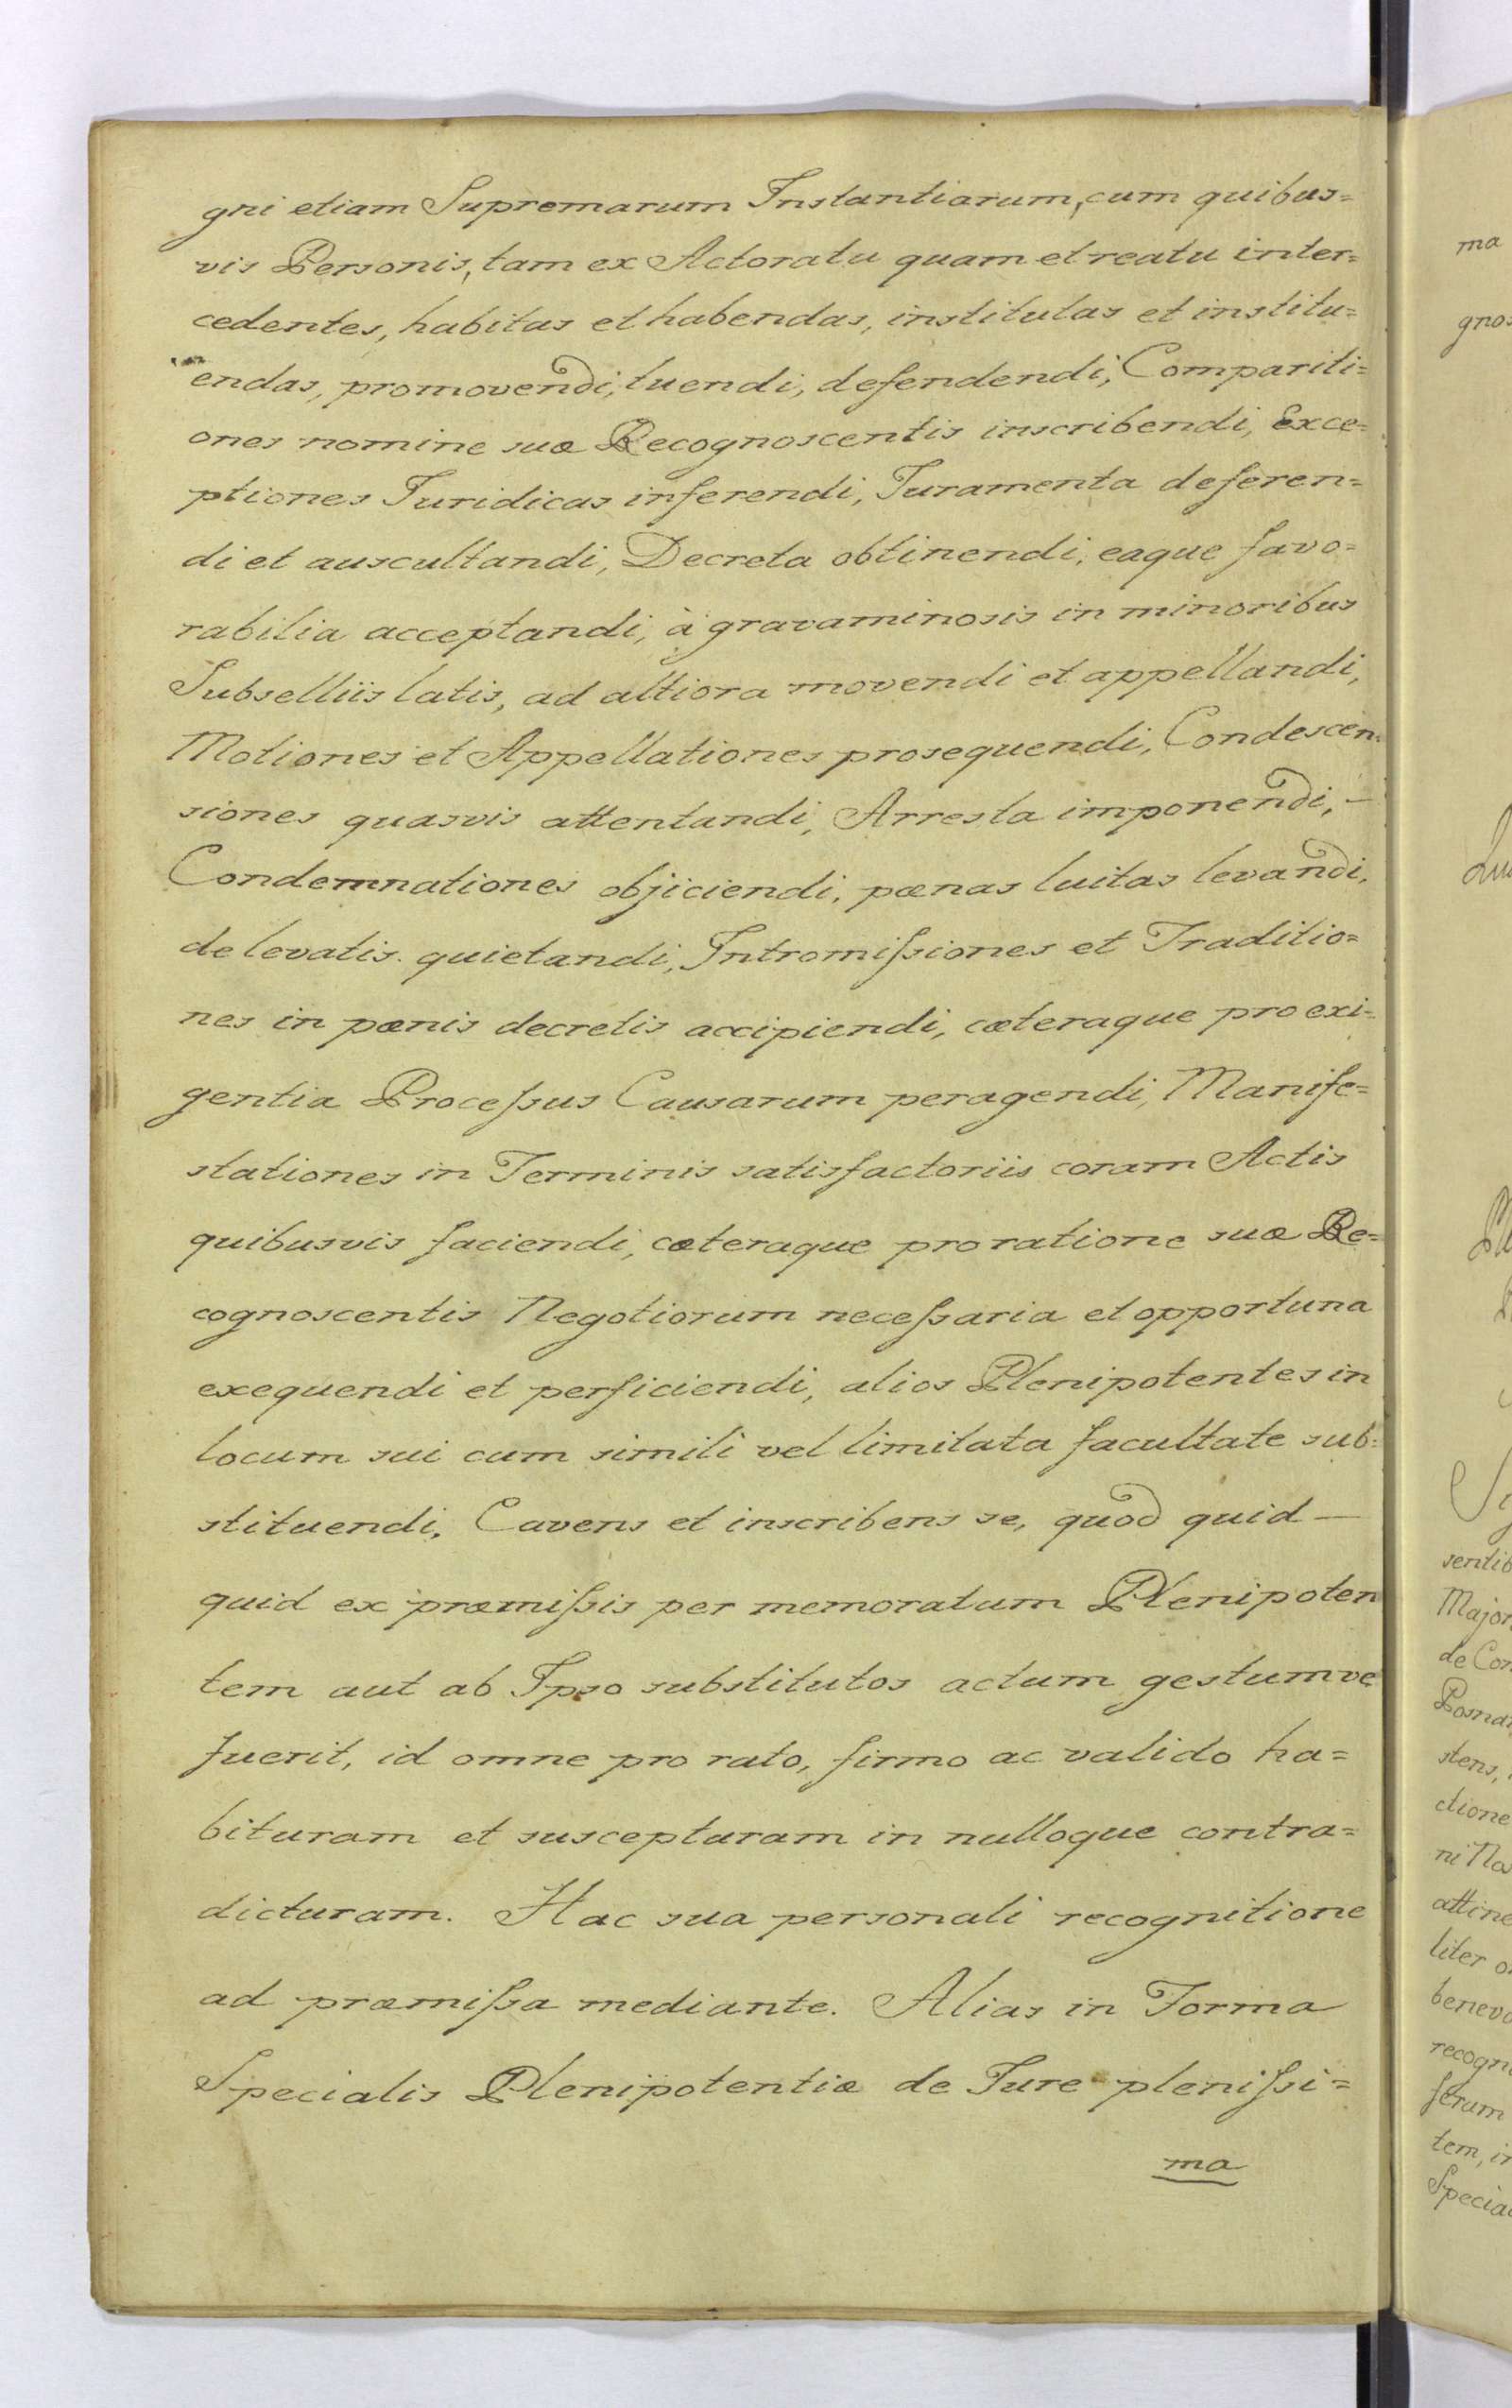 gni etiam Supremarum Instantiarum, cum quibus=
vis Personis, tam ex Actoratu quam et reatu inter=
cedentes, habitas et habendas, institutas et institu=
endas, promovendi, tuendi, defendendi, Compariti=
ones nomine suæ Recognoscentis inscribendi, Exce=
ptiones Juridicas inferendi, Juramenta deferen=
di et auscultandi, Decreta obtinendi, eaque favo=
rabilia acceptandi, à gravaminosis in minoribus
Subselliis latis, ad altiora movendi et appellandi,
Motiones et Appellationes prosequendi, Condescen=
siones quasvis attentandi, Arresta imponendi, –
Condemnationes objiciendi, pænas luitas levandi,
de levatis quietandi, Intromiſsiones et Traditio=
nes in pænis decretis accipiendi, cæteraque pro exi=
gentia Proceſsus Causarum peragendi, Manife=
stationes in Terminis satisfactoriis coram Actis
quibusvis faciendi, cæteraque pro ratione suæ Re=
cognoscentis Negotiorum neceſsaria et opportuna
exequendi et perficiendi, alios Plenipotentes in
locum sui cum simili vel limitata facultate sub=
stituendi. Cavens et inscribens se, quod quid —
quid ex præmiſsis per memoratum Plenipoten
tem aut ab Ipso substitutos actum gestumve
fuerit, id omne pro rato, firmo ac valido ha=
bituram et suscepturam in nulloque contra=
dicturam. Hac sua personali recognitione
ad præmiſsa mediante. Alias in Forma
Specialis Plenipotentiæ de Jure pleniſsi=
ma
ma
gnos
sentib
Major
de Con
Poman
stens,
ctione
ni No
attine
liter o
benevo
recogn
ferum
tem, in
Specia